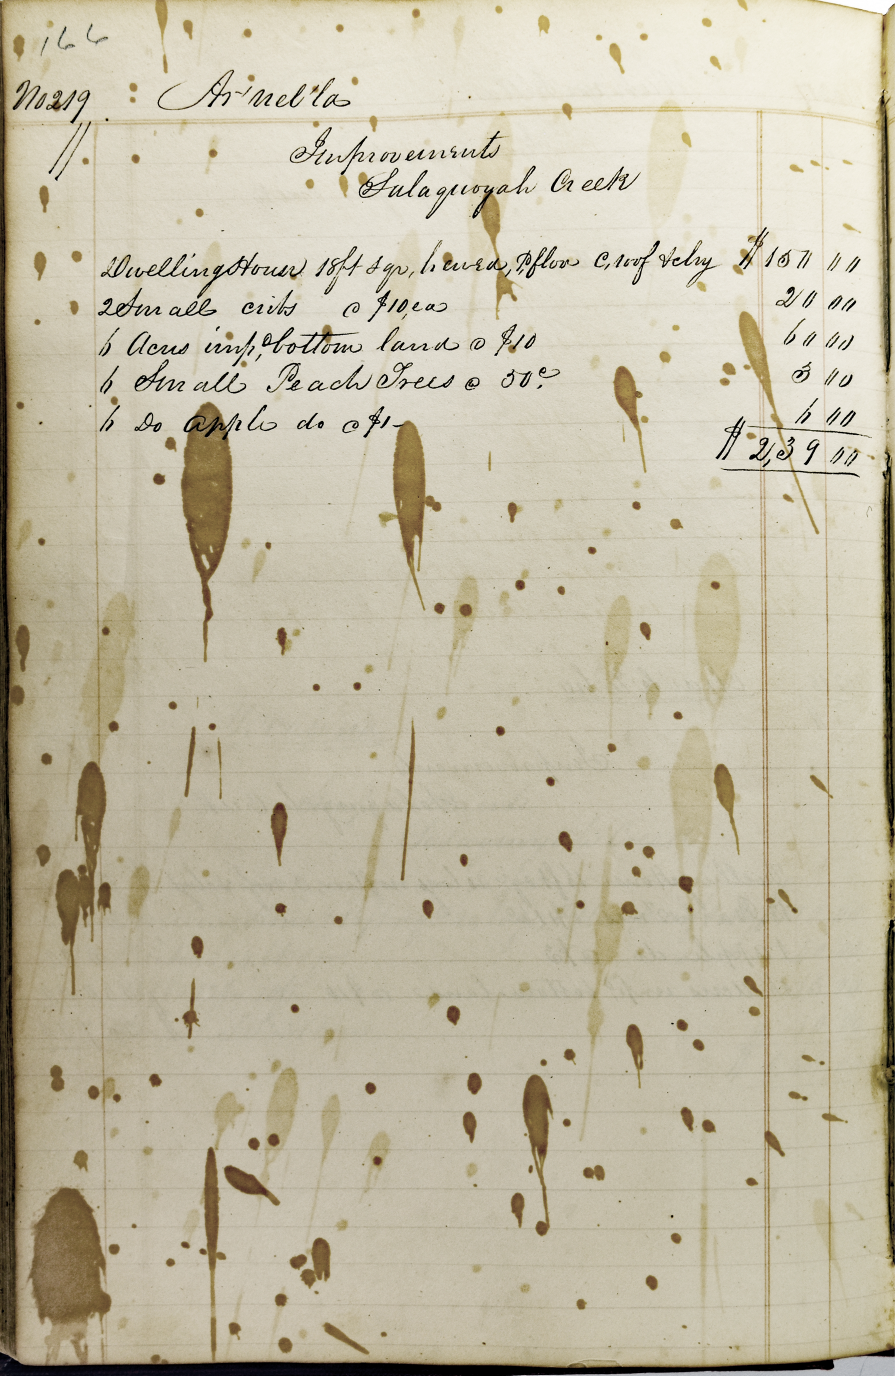 166
No 219 Ar'nel'la
"
Improvements
Sulaquoyah Creek
Dwelling House 18ft sqr, hewed, P, floor C, roof & chy $ 150 00
2 Small cribs @ $10, ea 20 00
6 Acres imp,d bottom land @ $10 60 00
6 Small Peach Trees @ 50c. 3 00
6 Do apple do @ $1- 6 00
$ 2,39 00